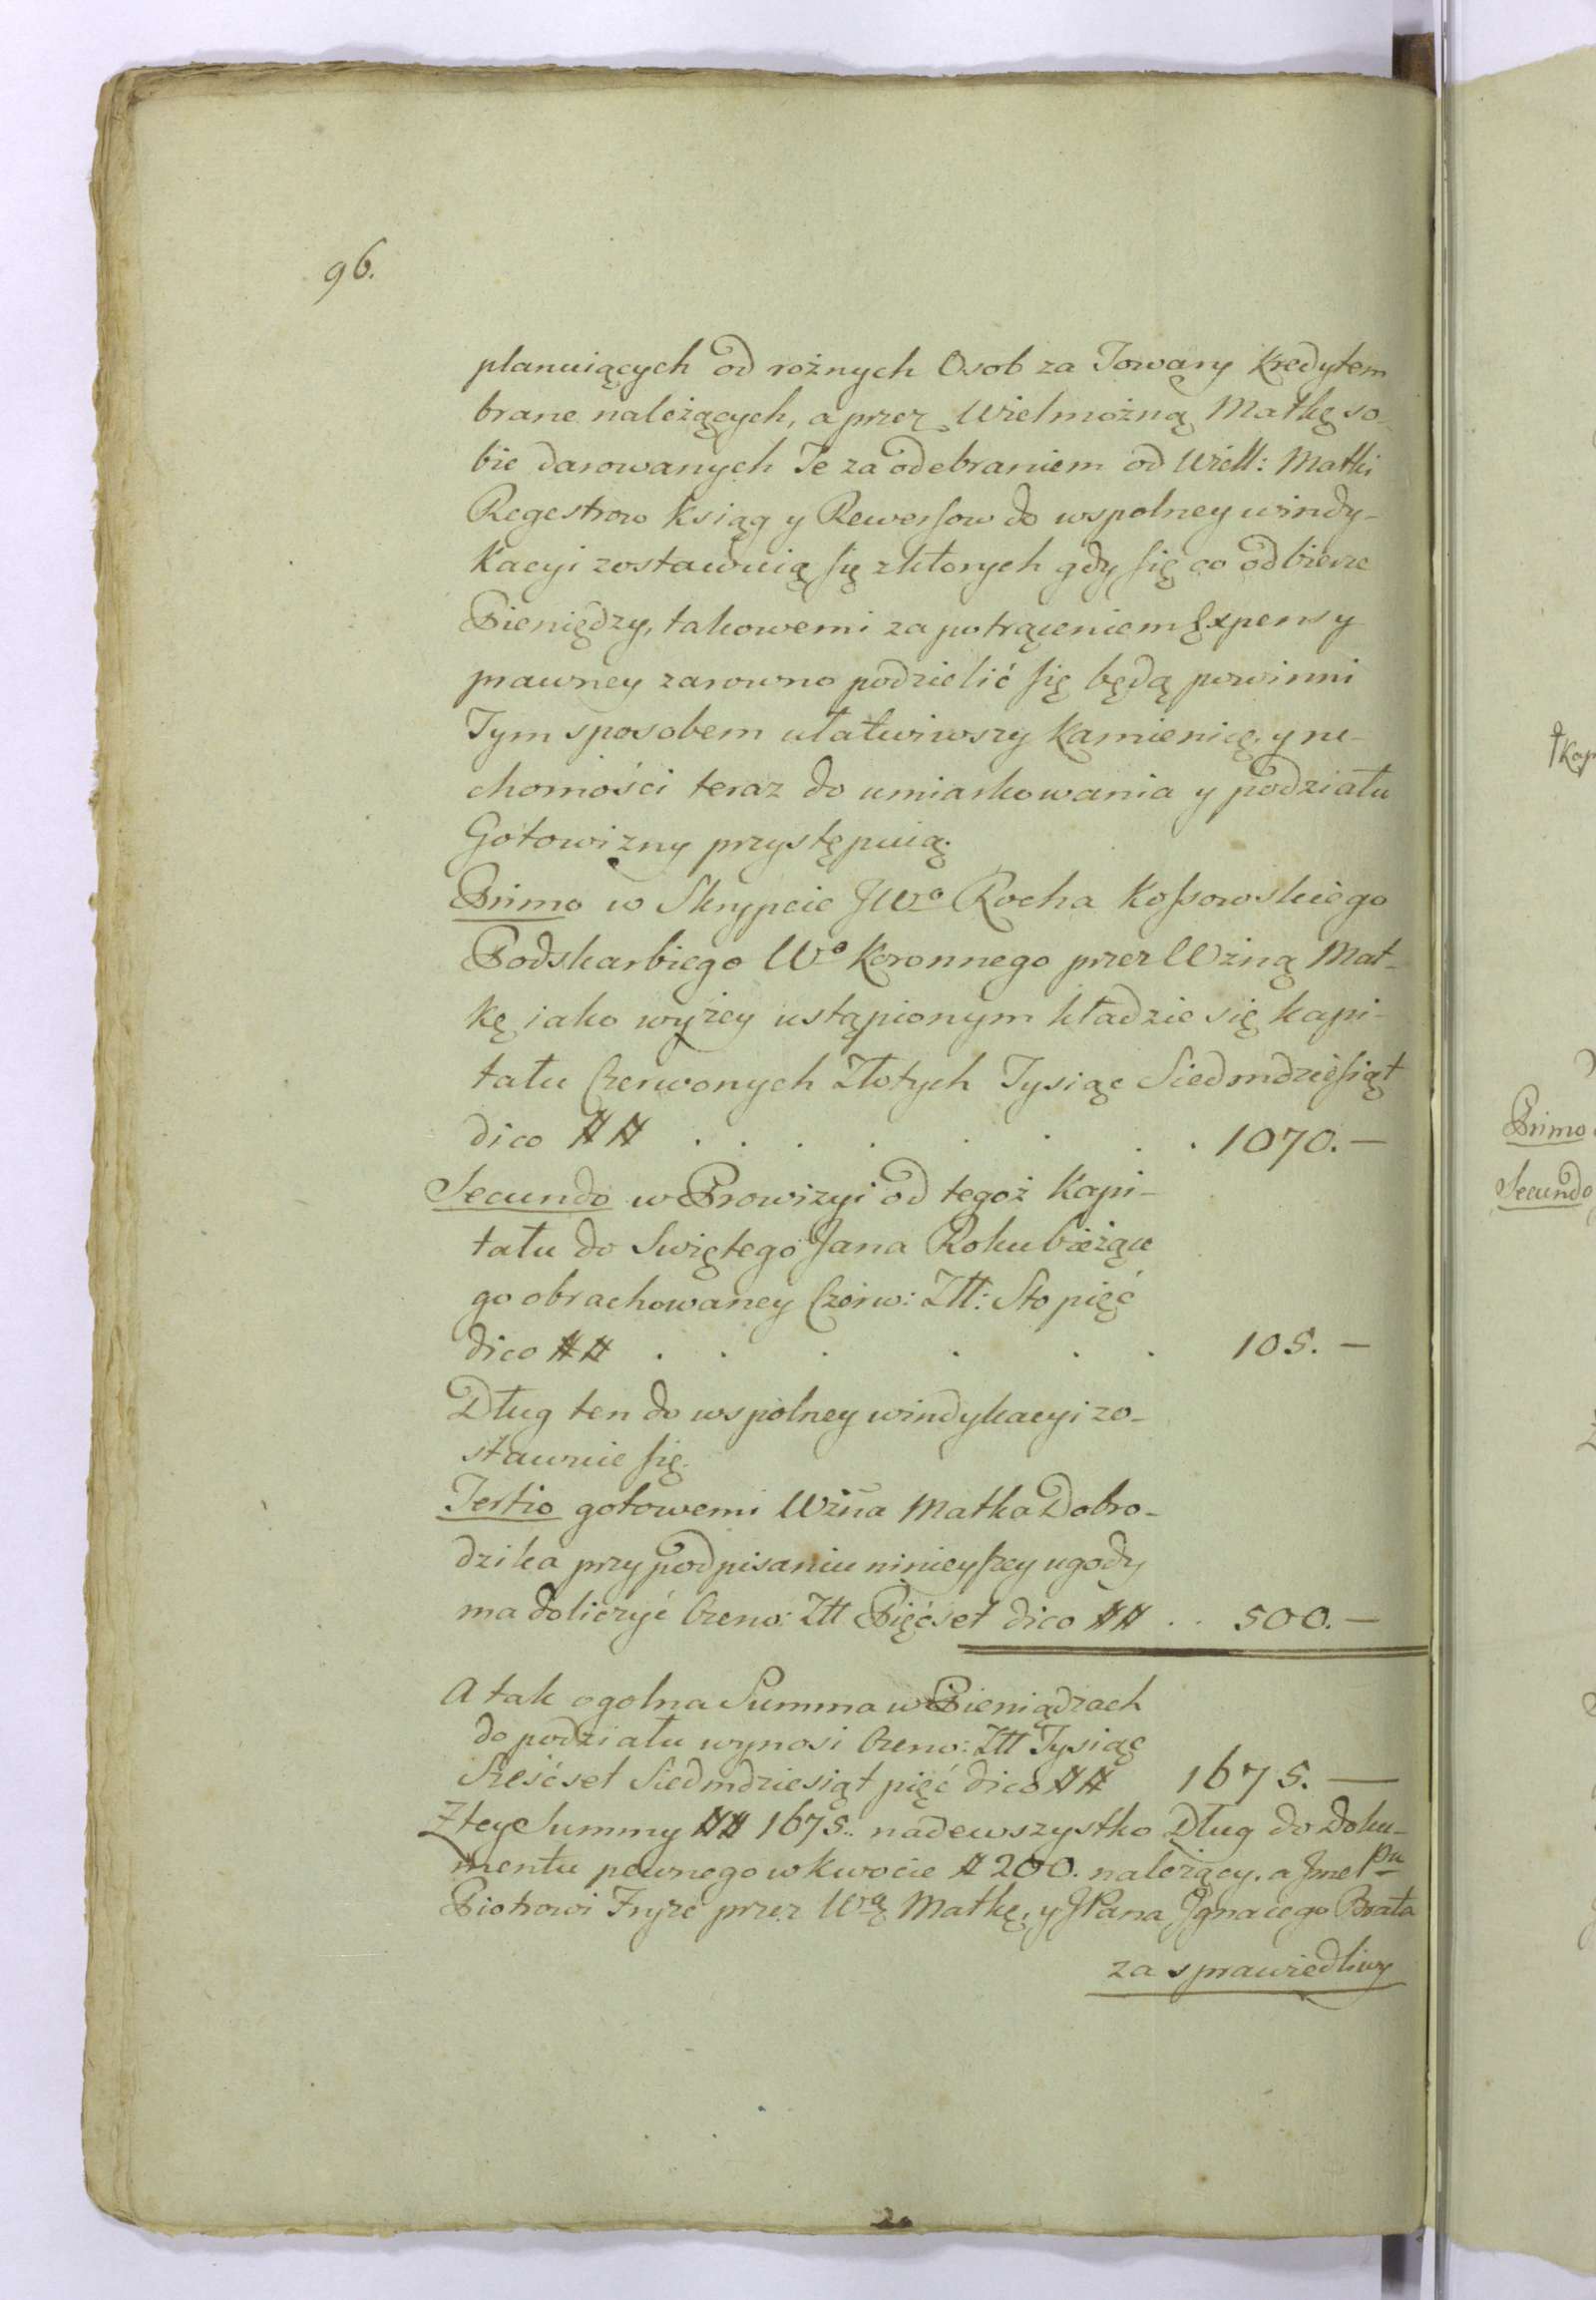 96.
planuiących od rożnych Osob za Towary Kredytem
brane należących, a przez Wielmożną Matkę so-
bie darowanych Te za odebraniem od Wiell: Matki
Regestrow Ksiąg y Rewersow do wspolney windy-
kacyi zostawuią się z ktorych gdy się co odbierze
Pieniędzy, takowemi za potrąceniem Expensy
prawney zarowno podzielić się będą powinni
Tym sposobem ułatwiwszy Kamienicę, y ru-
chomości teraz do umiarkowania y podziału
Gotowizny przystępuią.
Primo w Skrypcie JWo Rocha Kossowskiego
Podskarbiego Wo Koronnego przez Wżną Mat-
kę iako wyżey ustąpionym kładzie się kapi-
tału Czerwonych Złotych Tysiąc Siedmdziesiąt
dico ## . . . . . . . . 1070. —
Secundo w Prowizyi od tegoż Kapi-
tału do Swiętego Jana Roku bieżące
go obrachowaney Czerw: Złł: Sto pięć
dico ## . . . . . . 105. —
Dług ten do wspolney windykacyi zo-
stawuie się.
Tertio gotowemi Wżna Matka Dobro-
dzika przy podpisaniu ninieyszey ugody
ma doliczyć Czerw: Złł Pięćset dico ## . . 500. —
A tak ogolna Summa w Pieniądzach
do podziału wynosi Czerw: Złł Tysiąc
Sześćset Siedmdziesiąt pięć dico ## 1675. —
Z tey Summy ## 1675.. nadewszystko Dług do Doku-
mentu pewnego w kwocie # 200. należący, a Jme Pu
Piotrowi Fryze przez Wą Matkę, y JPana Jgnacego Brata
za sprawiedliwy
Primo
Secundo